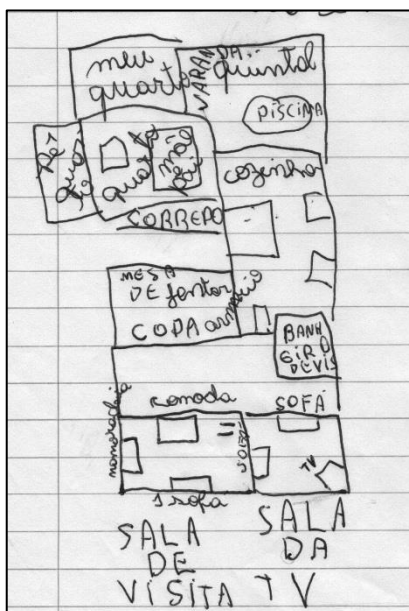 meu
quarto
VARANDA
quintal
PISCINA
quarto
mãe
pai
cozinha
CORREDO
MESA
DE jantar
COPA armário
BANH
EIRO
DEVIS
comoda
SOFÁ
namoradeira
SOFÁ
TV
1 sofa
SALA
DE
VISITA
SALA
DA
TV